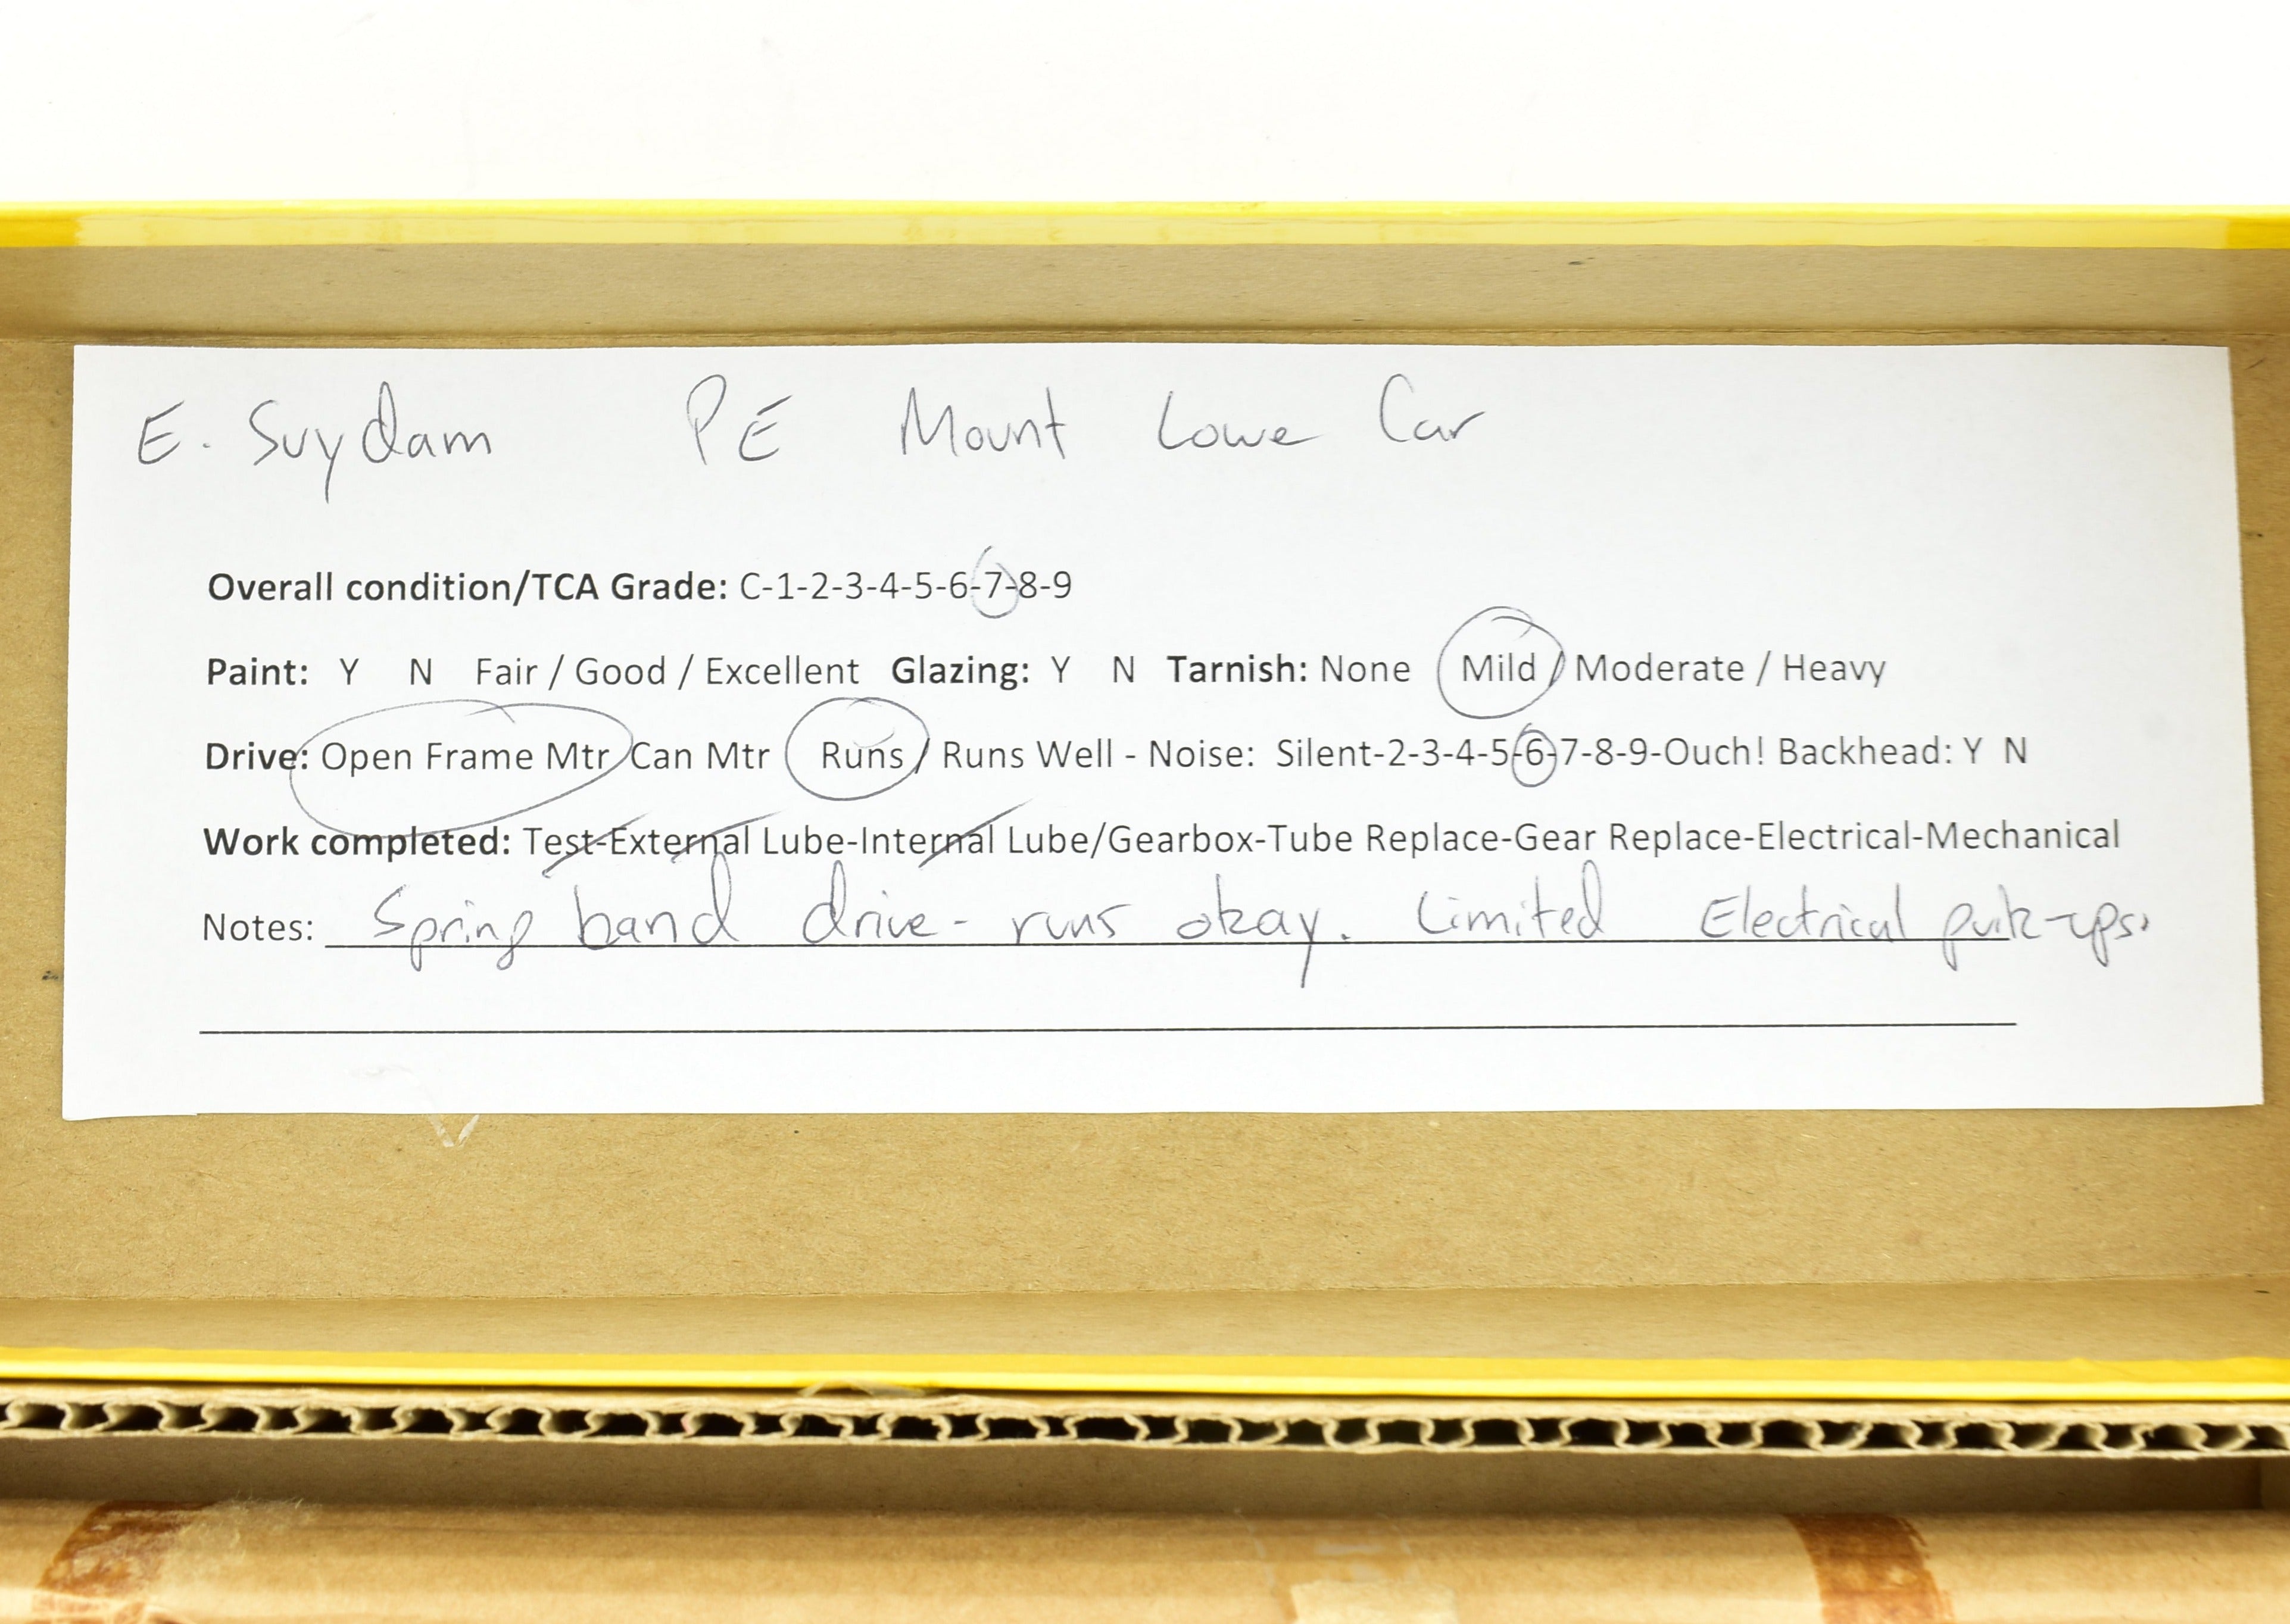 E. Suydam PE Mount Lowe Car
Overall condition/TCA Grade: C-1-2-3-4-5-6-7-8-9
Paint: Y N Fair / Good / Excellent Glazing: Y N Tarnish: None Mild / Moderate / Heavy
Drive: Open Frame Mtr Can Mtr Runs / Runs Well - Noise: Silent-2-3-4-5-6-7-8-9-Ouch! Backhead: Y N
Work completed: Test-External Lube-Internal Lube/Gearbox-Tube Replace-Gear Replace-Electrical-Mechanical
Notes: Spring band drive - runs okay. Limited Electrical puik-ups.